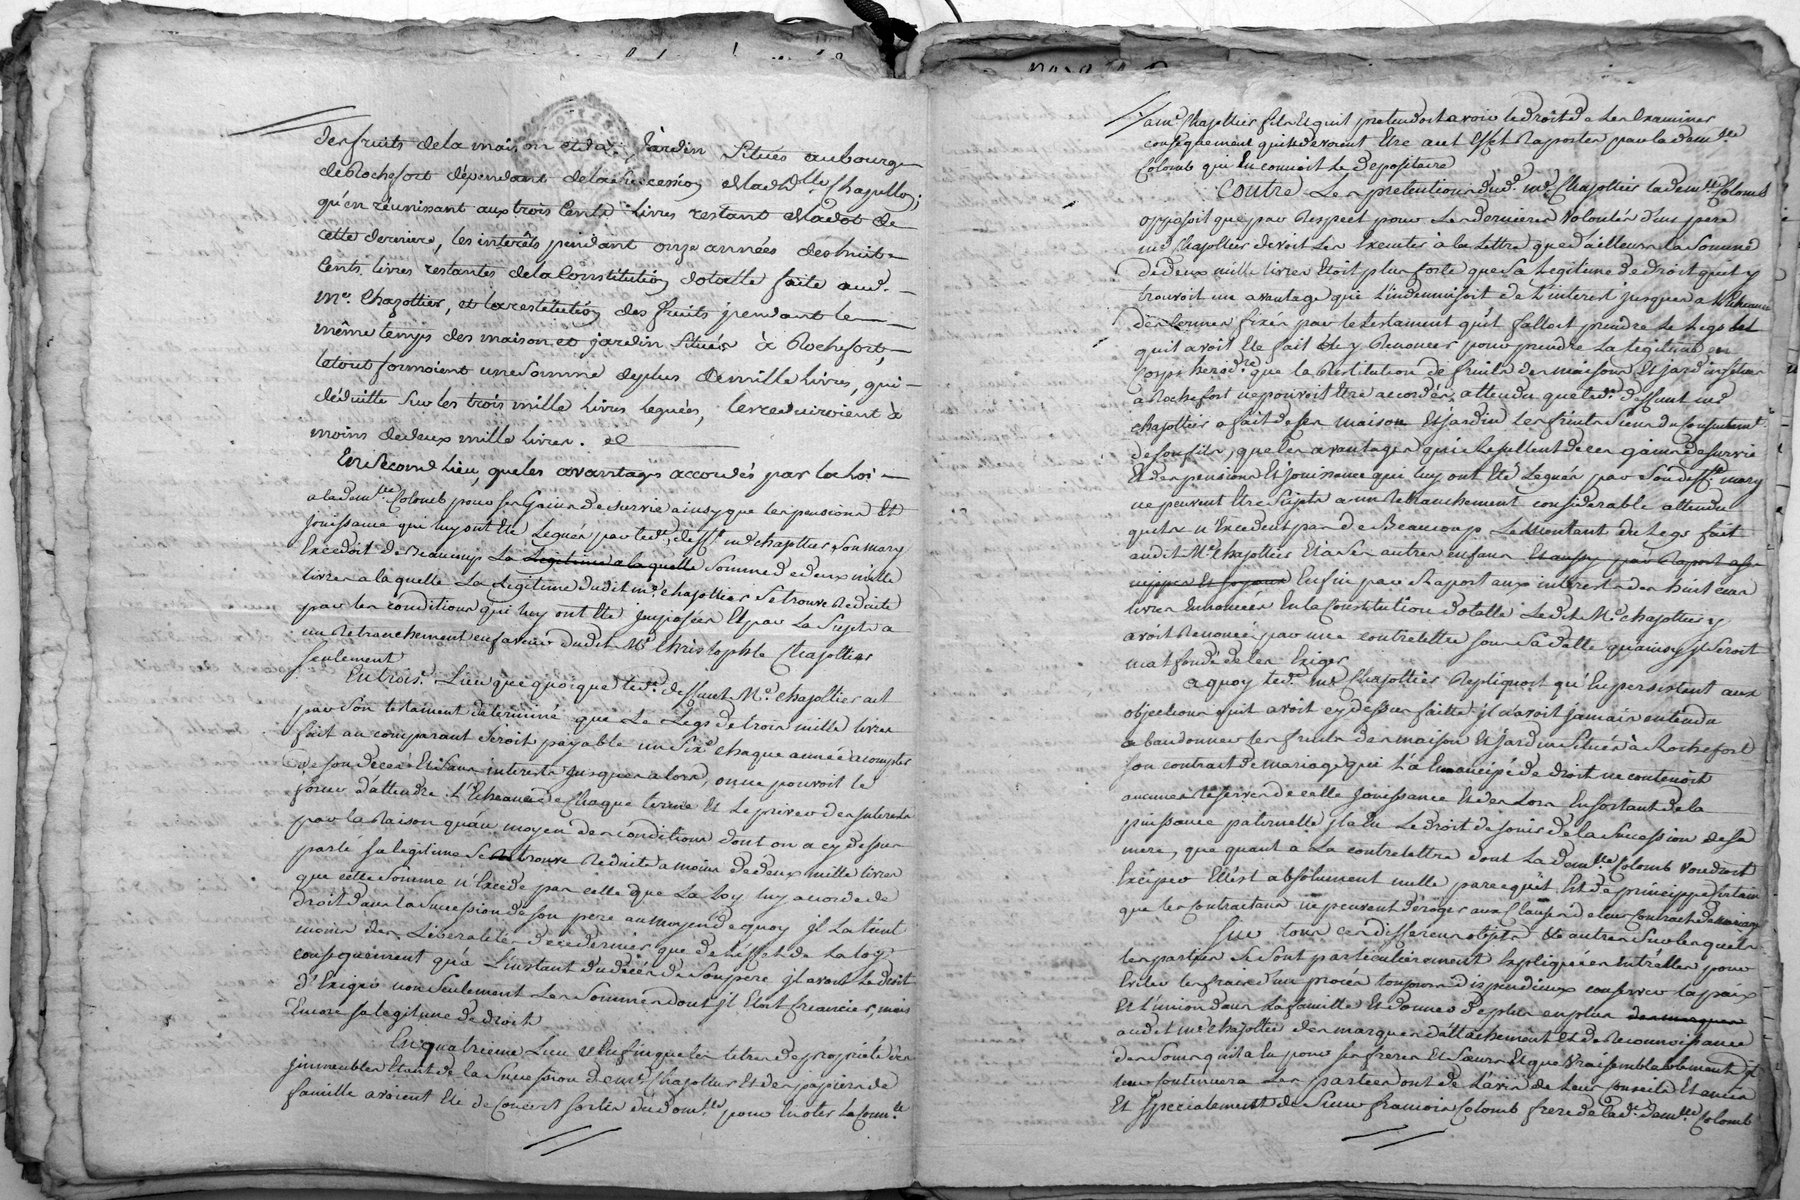 des fruits de la maison et du jardin Situés au bourg
de Rochefort dépendant de la succession de lad dlle Chapellon;
qu'en réunissant aux trois Cents Livres restant de la dot de
cette derniere, les interêts pendant onze années des huit
Cents livres restantes de la Constitution dotalle faite aud.
Me. Chazottier, et la restitution des fruits pendant le
même temps des maison et jardin Situés à Rochefort,
le tout formoient une Somme de plus de mille Livres, qui
déduitte Sur les trois mille Livres leguées, les reduiroient à
moins de deux mille livres. et
En Second lieu, que les avantages accordés par la loi
a la demlle Colomb pour ses Gains de survie ainsy que les pensions Et
Jouissance qui luy ont Eté Legués par led. deft. me chazottier Son mary
Excedoit de Beaucoup La Legitime a laquelle Somme de deux mille
livres a laquelle La Legitime dudit me chazottier Se trouve Reduite
par les conditions qui luy ont Eté Imposées Et par La Sujete a
un Retranchement en faveur dudit Me Christophle Chazottier
seulement
En trois.e Lieu que quoique led. deffunt Me. Chazottier ait
par Son testament determiné que Le Legs de trois mille livres
fait au comparant Seroit payable un Sixe chaque année a compter
de son decès Et Sans interets Jusques alors, on ne pouvoit le
forcer d'attendre L'Echeance de Chaque terme Et Le priver des interets
par la Raison qu'au moyen des conditions dont on a cy dessus
parlé sa legitime Se trouve Reduite a moins de deux mille livres
que cette Somme n'Excede pas celle que La Loy luy accorde de
droit dans la Succession de Son pere au moyen de quoy il La tient
moins des Liberalités de ce dernier que de L'effet de La loy
consequement qu'a L'instant du décés de Son pere il avoit Le droit
d'Exiger non Seulement Les Sommes dont il Etoit Creancier, mais
Encore sa legitime de droit
En quatrieme Lieu et Enfin que les titres de proprieté des
immeubles Etant de la Succession de me Chazottier Et des papiers de
famille avoient Eté de Concert sortis du dom.le pour En oter La Conn.ce
a me Chazottier fils Et qu'il pretendoit avoir le droit de Les Examiner
consequement qu'ils devoient Etre aut effet Raportés par la demlle
Colomb qui En connoit Le depositaire
Contre Les pretentions dud. me. Chazottier la demlle Colomb
opposoit que par Respect pour Les dernieres Volontés d'un pere
me Chazottier devoit Les Executer à la Lettre que d'ailleurs La Somme
de deux mille livres Etoit plus forte que Sa Legitime de droit qu'il y
trouvoit un avantage qui L'indemnisoit de L'interest jusques a l'Echeance
des termes fixés par le testament qu'il falloit prendre Le Legs tel
qu'il avoit Eté fait Et y Renoncer pour prendre La Legitime en
Corps hered.re que la Restitution de fruits des maisons Et Jardin situés
a Rochefort ne pouvoit Etre accordée, attendu que led. deffunt me
chazottier a fait de Ses maison Et Jardin Les fruits Siens du Consentemt
de Son fils, que les avantages qui Resultent de ces gains de survie
Et des pensions Et Jouissance qui luy ont Eté Legués par Son deft. mary
ne peuvent Etre Sujets a un Retranchement considerable attendu
qu'ils n'Excedent pas de Beaucoup Le montant du Legs fait
audit Me Chazottier Et a Ses autres enfans Et aussy par Raport a ses
nippes Et joyaux Enfin par Raport aux interets des huit cens
livres Enoncées En la Constitution dotalle Ledit Me. Chazottier y
avoit Renoncé par une contrelettre sous Sa datte qu'ainsy il Seroit
mal fondé de les Exiger
a quoy led. me Chazottier Repliquoit qu'En persistant aux
objections qu'il avoit cy dessus faitte il n'avoit jamais entendu
abandonner Les fruits des maison Et Jardin Situés à Rochefort
Son contrat de mariage qui L'a Emancipé de droit ne contenoit
aucunes reserves de cette Jouissance Et des Lors En Sortant de la
puissance paternelle il a Eu Le droit de Jouir de la Succession de Sa
mere, que quant à La contrelettre dont La demlle Colomb Voudroit
Exciper Elle est absolument nulle parce qu'il Est de principe certain
que les Contractans ne peuvent déroger aux Clauses de leur Contract de mariage
Sur tous ces differens objets Et autres Sur lesquels
les parties Se Sont particulierement Expliquées Entr'elles pour
Eviter les fraix d'un procès toujours dispendieux conserver la paix
Et L'union dans La famille Et donner de plus en plus des marques
audit me Chazottier des marques d'attachement Et de Reconnoissance
des Soins qu'il a Eu pour ses freres Et Sœurs Et que Vraisemblablement il
leur Continuera Les parties ont de L'avis de Leur Conseils Et amis
Et Specialement de Sieur François Colomb frere de lad. demlle Colomb